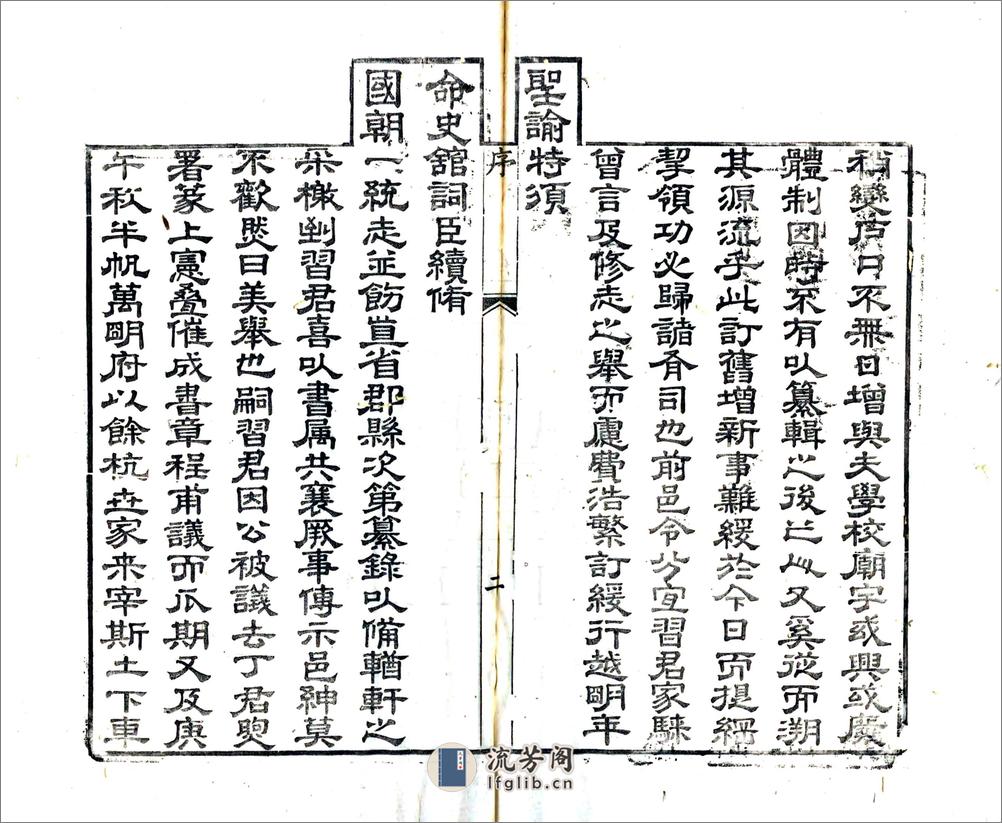 稍變戶口不無日增與夫學校廟宇或興或廢
體制因時不有以纂輯之後之人又奚從而溯
其源流乎此訂舊增新事難緩於今日而提綱
挈領功必歸諸有司也前邑令分宜習君家駉
曾言及修志之舉而慮費浩繁訂緩行越明年
聖諭特須
命史館詞臣續脩
國朝一統志並飭直省郡縣次第纂錄以備輶軒之
采檄到習君喜以書屬共襄厥事傳示邑紳莫
不歡然曰美舉也嗣習君因公被議去丁君煚
署篆上憲疊催成書章程甫議而瓜期又及庚
午秋半帆萬明府以餘杭世家来宰斯土下車
序
二
流芳阁
lfglib.cn